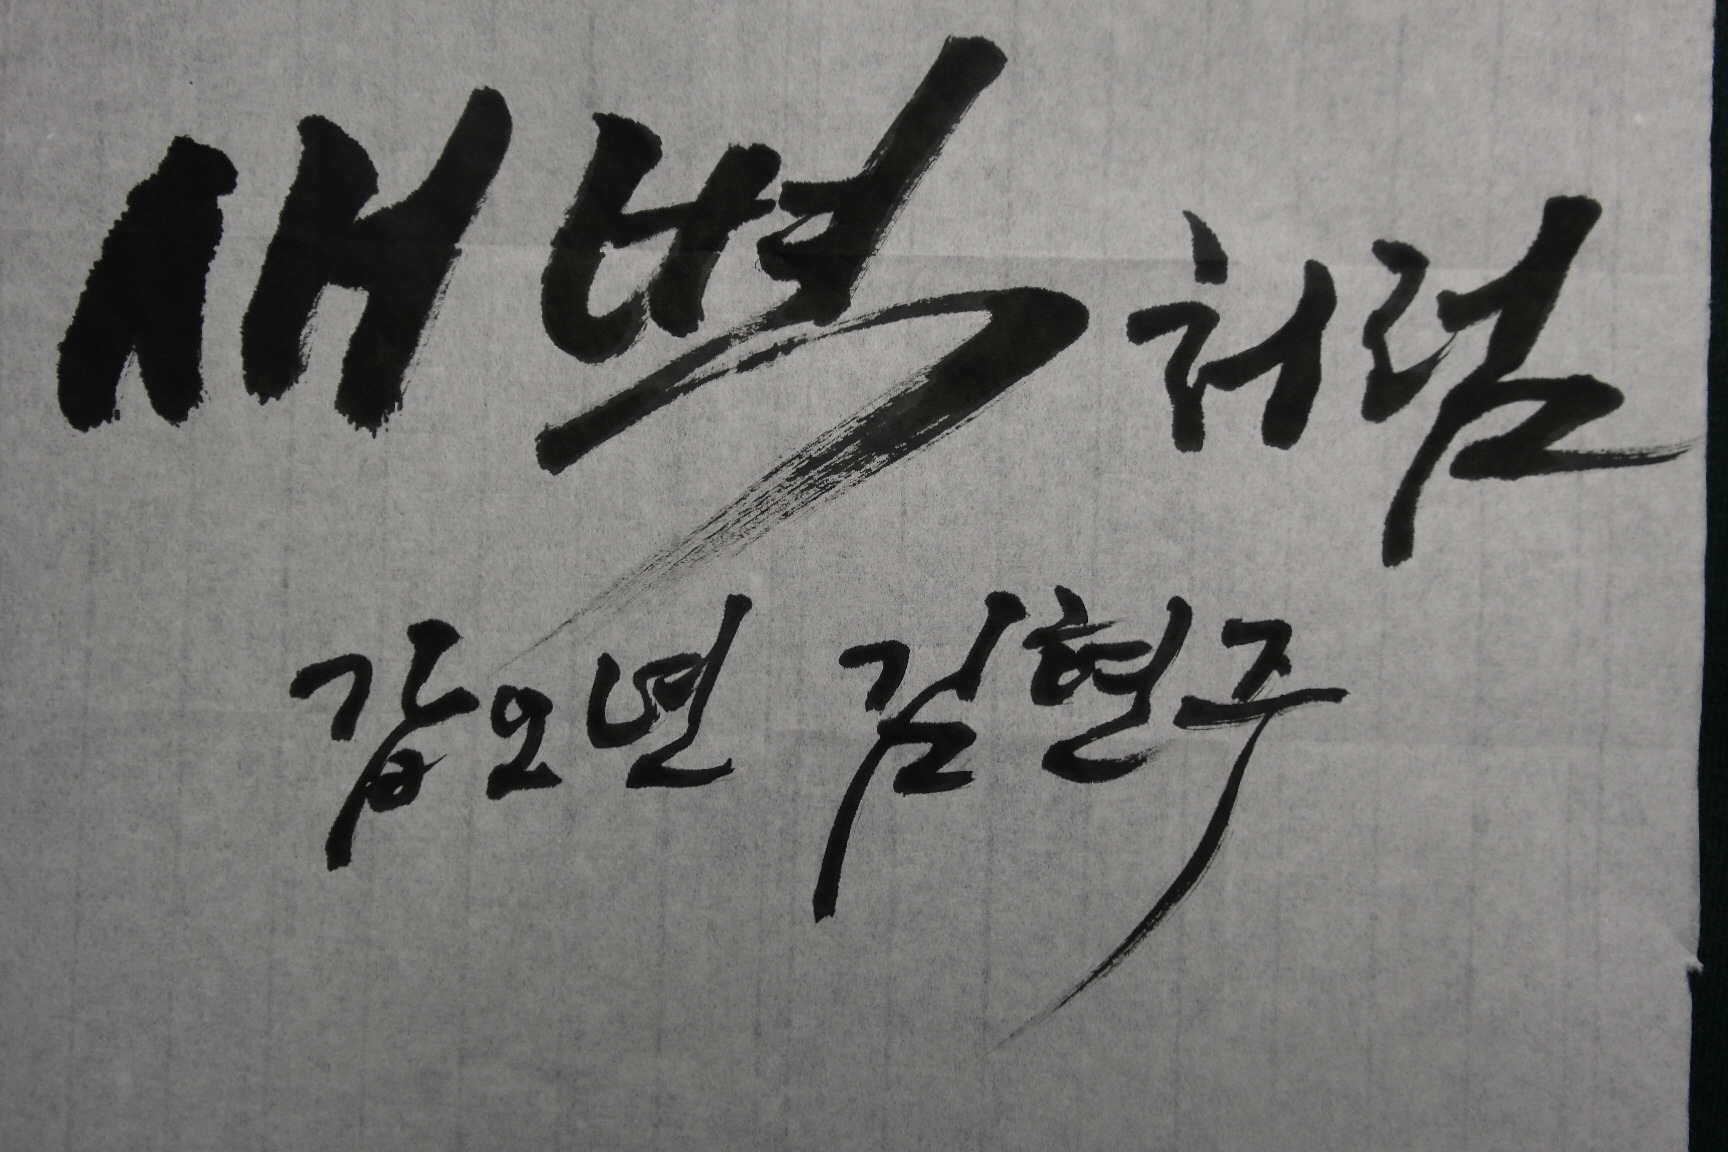 새벽처럼
갑오년 김현주